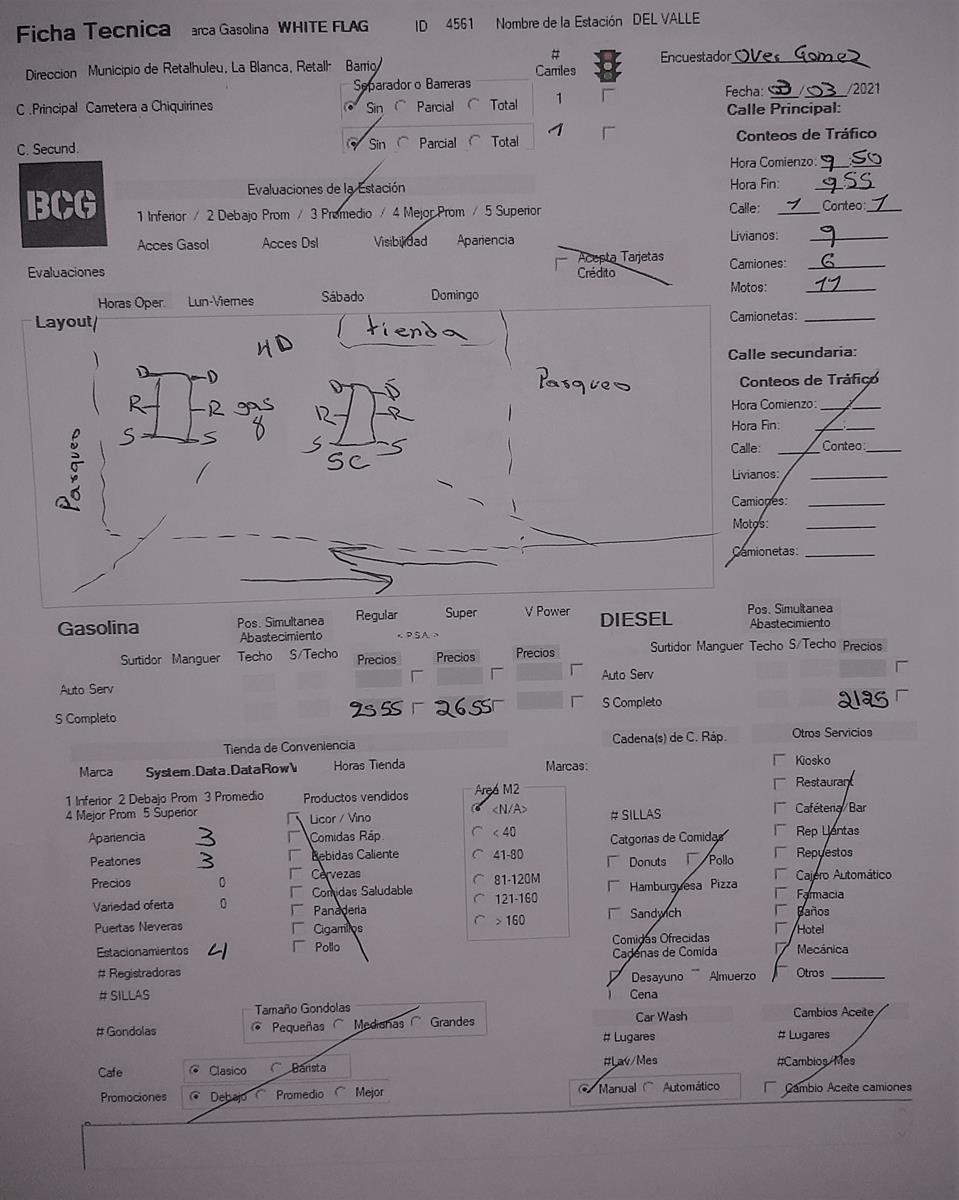 Ficha Tecnica arca Gasolina WHITE FLAG ID 4561 Nombre de la Estación DEL VALLE
Direccion Municipio de Retalhuleu, La Blanca, Retalh Barrio
# Carriles
Encuestador Over Gomez
Separador o Barreras
C .Principal Carretera a Chiquirines Sin Parcial Total 1
C. Secund. Sin Parcial Total 1
Fecha: /03/2021
Calle Principal:
Conteos de Tráfico
Hora Comienzo: 9:50
Hora Fin: 9 55
Calle: 1 Conteo: 1
Livianos: 9
Camiones: 6
Motos: 11
Camionetas:
BCG
Evaluaciones de la Estación
1 Inferior / 2 Debajo Prom / 3 Promedio / 4 Mejor Prom / 5 Superior
Acces Gasol Acces Dsl Visibilidad Apariencia
Evaluaciones
Acepta Tarjetas
Crédito
Horas Oper. Lun-Viernes Sábado Domingo
Layout
tienda
HD
D D D D
R R gas R R
S S S S
8
SC
Parqueo
Parqueo
Calle secundaria:
Conteos de Tráfico
Hora Comienzo:
Hora Fin:
Calle: Conteo:
Livianos:
Camiones:
Motos:
Camionetas:
Gasolina
Pos. Simultanea
Abastecimiento
Regular Super V Power
< P.S.A. >
Surtidor Manguer Techo S/Techo Precios Precios Precios
Auto Serv
S Completo 2555 2655
DIESEL
Pos. Simultanea
Abastecimiento
Surtidor Manguer Techo S/Techo Precios
Auto Serv
S Completo 2125
Tienda de Conveniencia
Marca System.Data.DataRowV Horas Tienda Marcas:
1 Inferior 2 Debajo Prom 3 Promedio
4 Mejor Prom 5 Superior
Apariencia 3
Peatones 3
Precios 0
Variedad oferta 0
Puertas Neveras
Estacionamientos 4
# Registradoras
# SILLAS
# Gondolas
Productos vendidos
Licor / Vino
Comidas Ráp.
Bebidas Caliente
Cervezas
Comidas Saludable
Panaderia
Cigarrillos
Pollo
Area M2
<N/A>
< 40
41-80
81-120M
121-160
> 160
Tamaño Gondolas
Pequeñas Medianas Grandes
Cafe Clasico Barista
Promociones Debajo Promedio Mejor
Cadena(s) de C. Ráp.
# SILLAS
Catgorias de Comidas
Donuts Pollo
Hamburguesa Pizza
Sandwich
Comidas Ofrecidas
Cadenas de Comida
Desayuno Almuerzo
Cena
Otros Servicios
Kiosko
Restaurant
Cafétena/Bar
Rep Llantas
Repuestos
Cajero Automático
Farmacia
Baños
Hotel
Mecánica
Otros
Car Wash
# Lugares
#Lav/Mes
Manual Automático
Cambios Aceite
# Lugares
#Cambios/Mes
Cambio Aceite camiones